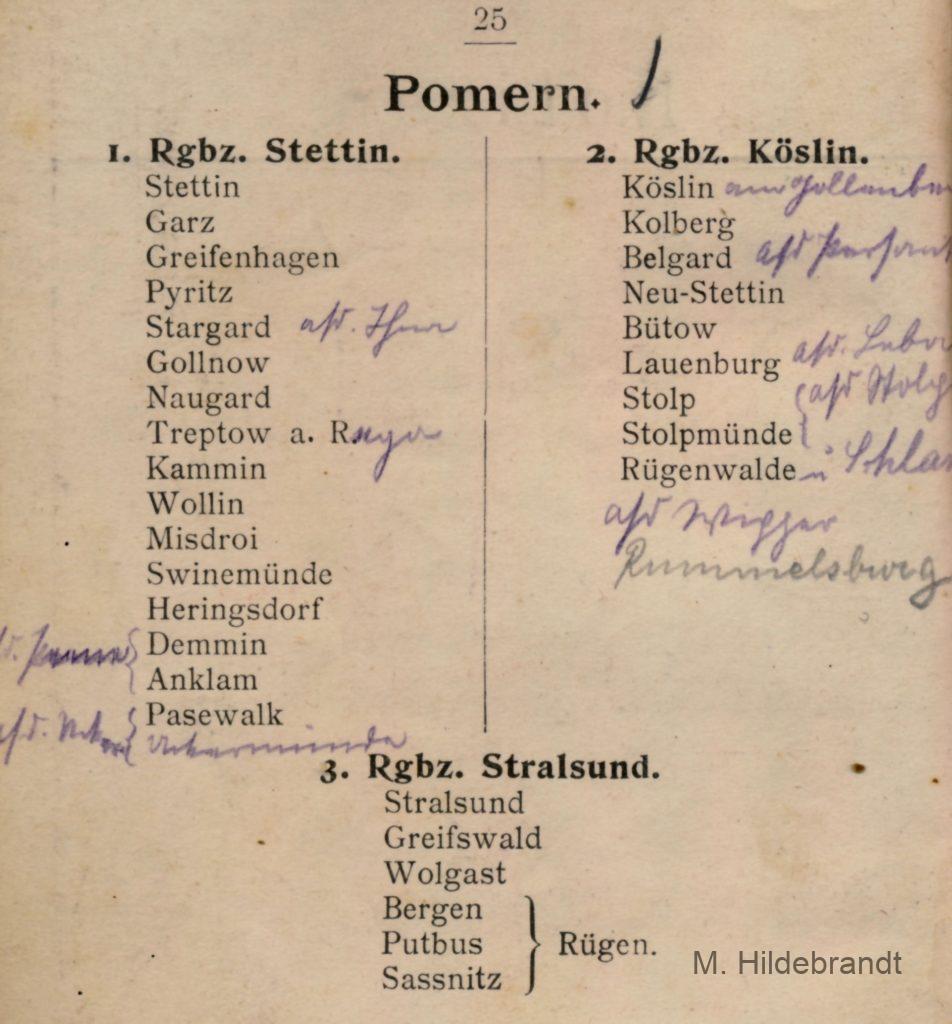 25
Pomern.
1. Rgbz. Stettin.
Stettin
Garz
Greifenhagen
Pyritz
Stargard a/d. Ihna
Gollnow
Naugard
Treptow a. Rega
Kammin
Wollin
Misdroi
Swinemünde
Heringsdorf
Demmin
Anklam
Pasewalk
Uckermünde
2. Rgbz. Köslin.
Köslin am Gollenbe
Kolberg
Belgard a/d Persant
Neu-Stettin
Bütow
Lauenburg a/d. Leba
Stolp a/d Stolp
Stolpmünde
Rügenwalde u Schla
a/d Wipper
Rummelsburg
3. Rgbz. Stralsund.
Stralsund
Greifswald
Wolgast
Bergen
Putbus } Rügen.
Sassnitz
M. Hildebrandt